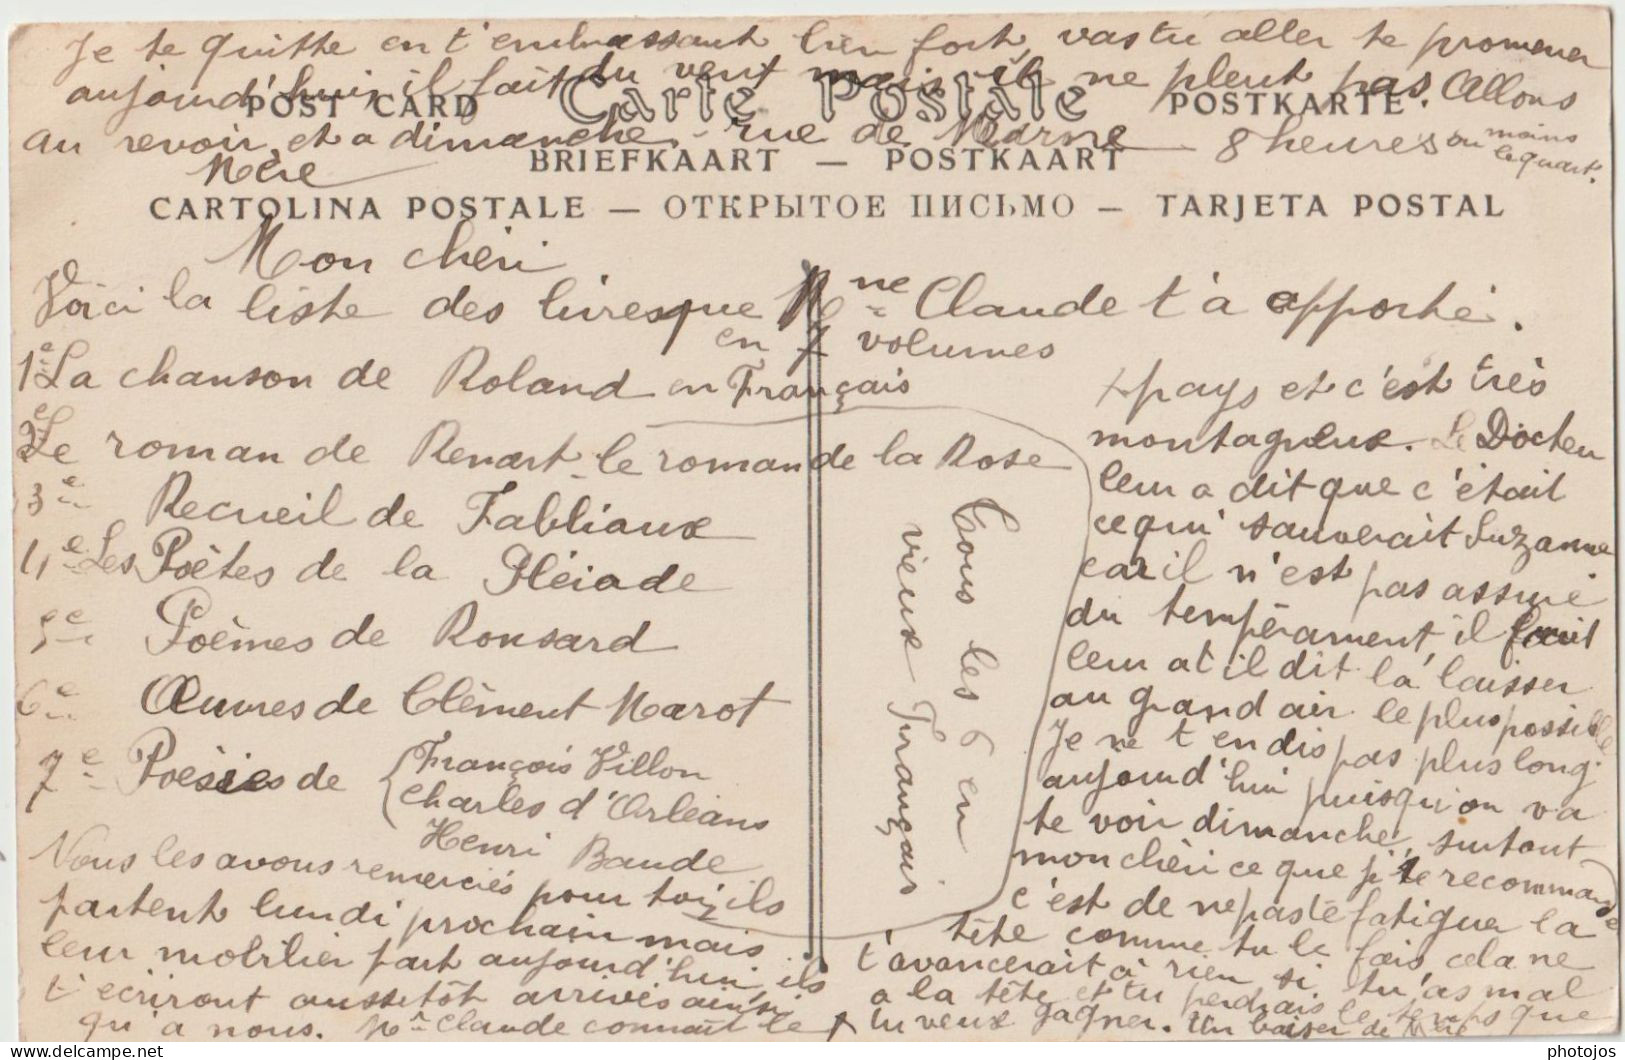 Je te quitte en t'embrassant bien fort, vas tu aller te promener
aujourd'hui, il fait du vent mais il ne pleut pas. Allons
au revoir, et a dimanche. rue de Marne 8 heures ou moins
le quart.
Mère
POST CARD Carte Postale POSTKARTE
BRIEFKAART — POSTKAART
CARTOLINA POSTALE — ОТКРЫТОЕ ПИСЬМО — TARJETA POSTAL
Mon chéri
Voici la liste des livres que Mne Claude t'a apporté.
en 7 volumes
1e La chanson de Roland en Français
2e Le roman de Renart le roman de la Rose
3e Recueil de Fabliaux
4e Les Poètes de la Pléiade
5e Poèmes de Ronsard
6e Œuvres de Clément Marot
7e Poésies de François Villon
Charles d'Orléans
Henri Baude
Tous les 6 en
vieux Français
Nous les avons remerciés pour toi, ils
partent lundi prochain mais
leur mobilier part aujourd'hui, ils
t'écriront aussitôt arrivés ainsi
qu'a nous. Mne Claude connaît le +
+ pays et c'est très
montagneux. Le Docteur
leur a dit que c'était
ce qui sauverait Suzanne
car il n'est pas assuré
du tempérament, il faut
leur at il dit la laisser
au grand air le plus possible
Je ne t'en dis pas plus long
aujourd'hui puisqu'on va
te voir dimanche, surtout
mon chéri ce que je te recommande
c'est de ne pas te fatiguer la
tête comme tu le fais cela ne
t'avancerait à rien si tu as mal
a la tête et tu perdrais le temps que
tu veux gagner. Un baiser de Mère
photojos